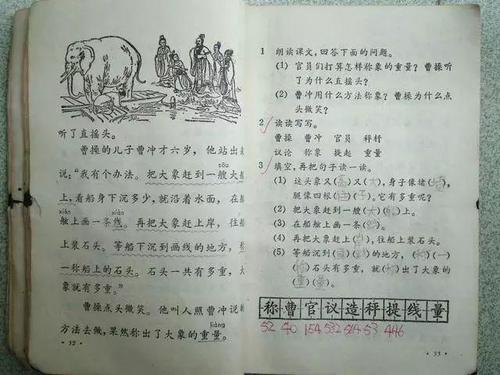 听了直摇头。
曹操的儿子曹冲才六岁，他站出
说："我有个办法。把大象赶到一艘大
上，看船身下沉多少，就沿着水面，在
舷上画一条线。再把大象赶上岸，往
上装石头。等船下沉到画线的地方，
一称船上的石头。石头一共有多重，大
象就有多重。"
曹操点头微笑。他叫人照曹冲说
方法去做，果然称出了大象的重量。
sōu
xián
xiàn
liàng
· 52 ·
1 朗读课文，回答下面的问题。
(1) 官员们打算怎样称象的重量？曹操听
了为什么直摇头？
(2) 曹冲用什么方法称象？曹操为什么点
头微笑？
2 读读写写。
曹操 曹冲 官员 秤杆
议论 称象 提起 重量
3 填空，再把句子读一读。
(1) 这头象又( )又(大)，身子像堵( )，
腿像四根( )。它有多重呢？
(2) 把大象赶到一艘(大)( )上。
(3) 在船舷上画一条( )。
(4) 再把大象赶上( )，往船上装石头。
(5) 等船下沉到( )( )的地方，( )一( )
船上的石头。石头有多重，就( )出了大象的
( )( )。
称曹官议造秤提线量
52 40 154 532 564 53 446
· 53 ·